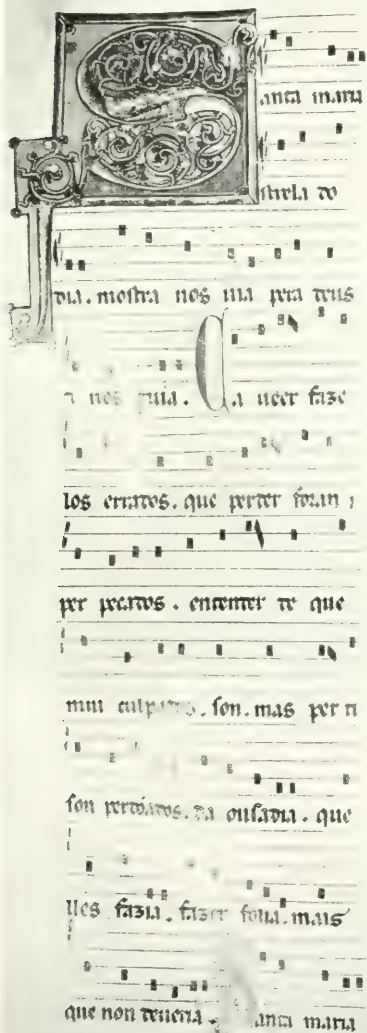 Santa maria
strela do
dia. mostra nos uia pera deus
e nos guia. Ca ueer faze
los errados. que perder foran
per pecados. entender de que
mui culpados. son. mas per ti
son perdõados. da ousadia. que
lles fazia. fazer folia. mais
que non deueria. Santa maria